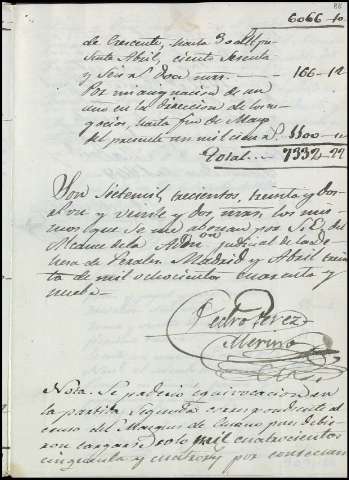 88
6066-10
de Crecente, hasta 30 del pre-
sente Abril, ciento sesenta
y seis r.s doce mrs. — 166-12
Por mi asignacion de un
uno en la direccion de los ne-
gocios, hasta fin de Mayo
del presente un mil cien r.s 1100-"
Total... 7332-22
Son sietemil, trecientos, treinta y dos
r.s von y veinte y dos mrs. los mis-
mos que se me abonan por S.E. del
Alcance de la Adon judicial de la de-
hesa de Perales. Madrid y Abril trein-
ta de mil ochocientos cuarenta y
nueve.
Pedro Perez
Merino
Nota. Se padecio equivocacion en
la partida segunda correspondiente al
censo del Marques de pues debie-
ron cargarse solo mil cuatrocientos
cincuenta y cuatro y por consecuen